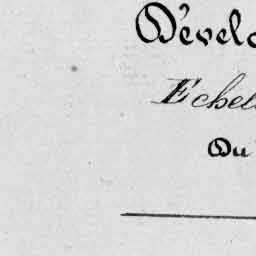 Dévelo
Echell
Du